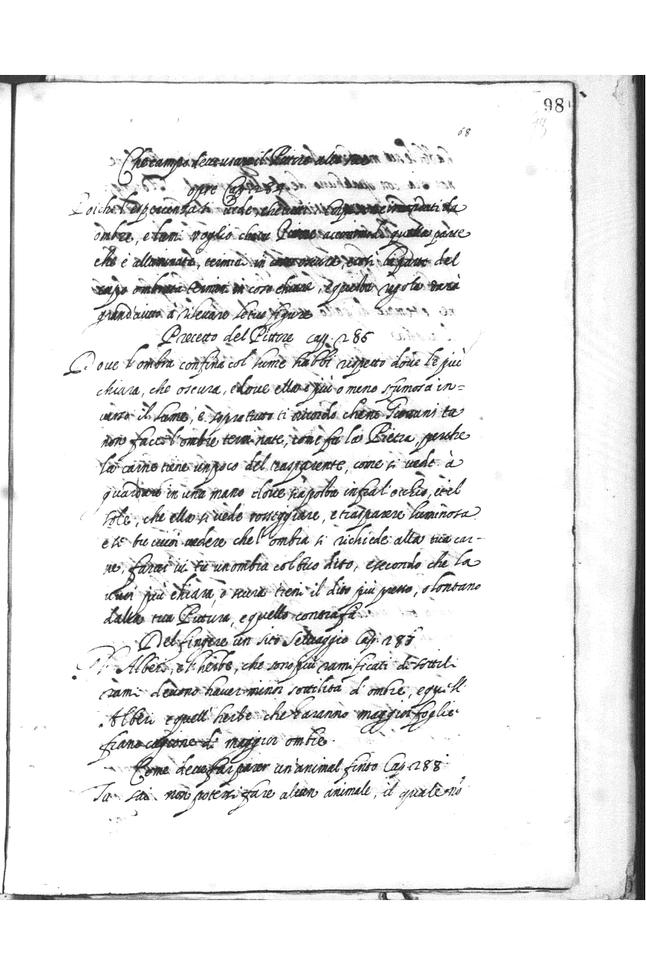 98
68
Che campo deve usare il Pittore alle sue
opre Cap. 285
Poiche l'esperienza si vede che tutti i corpi sono circondati da
ombre, e lumi voglio che tu Pittore accomodi quella parte
che è alluminata, termini in cosa oscura, e così la parte del
corpo ombrata termini in cosa chiara, e questa regola darà
grand'aiuto à rilevare le tue figure
Precetto del Pittore cap. 286
Dove l'ombra confina col lume habbi rispetto dove le più
chiara, che oscura, e dove ella è più o meno sfumosa in=
verso il lume, e sopratutto ti ricordo che ne Giovani tu
non facci l'ombre terminate, come fa la Pietra, perche
la carne tiene un poco del trasparente, come si vede à
guardare in una mano che sia posta infra l'occhio, et il
sole, che ella si vede rosseggiare, e trasparere luminosa
e se tu vuoi vedere che l'ombra si richiede alla tua car-
ne, farai ivi tu un'ombra col tuo dito, e secondo che la
vuoi più chiara, o scura tieni il dito più presso, o lontano
dalla tua Pittura, e quello contrafà.
Del fingere un sito Selvaggio Cap. 287
Gl'Alberi, e l'herbe, che sono più ramificati di sottil
rami devono haver minor sottilità d'ombre, e quelli
Alberi e quell'herbe che haranno maggior foglie
fiano cagione di maggior ombre.
Come deve far parer un'animal finto Cap. 288
Tu sai non potersi fare alcun animale, il quale nõ